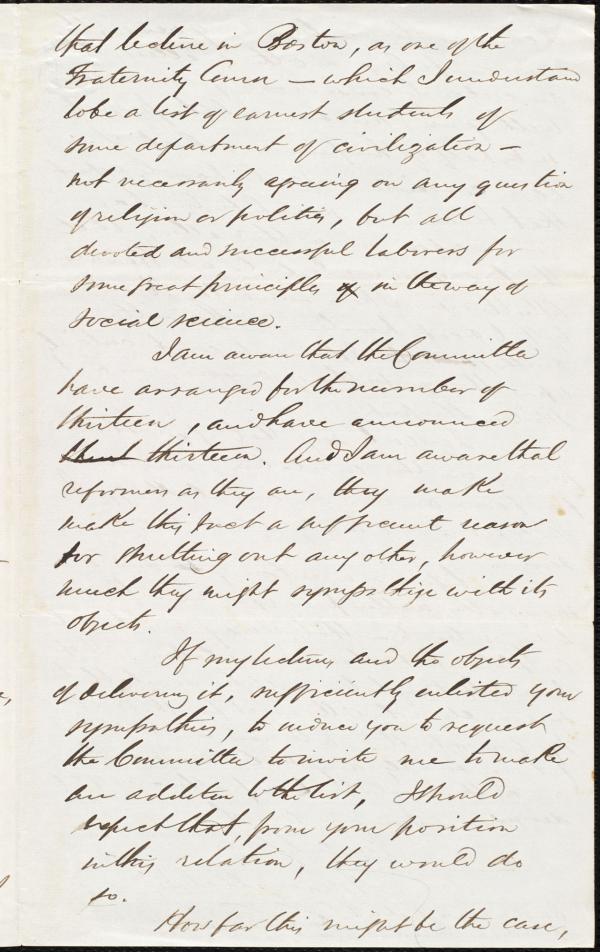 that lecture in Boston, as one of the
Fraternity Course – which I understand
to be a list of earnest students of
some department of civilization –
not necessarily agreeing on any question
of religion or politics, but all
devoted and successful laborers for
some great principles in the way of
social science.
I am aware that the Committee
have arranged for the number of
thirteen, and have announced
thirteen. And I am aware that
reformers as they are, they make
make this fact a sufficient reason
for shutting out any other, however
much they might sympathize with its
objects.
If my lecture and the objects
of delivering it, sufficiently enlisted your
sympathies, to induce you to request
the Committee to invite me to make
an addition to the list, I should
expect that, from your position
in this relation, they would do
so.
How far this might be the case,